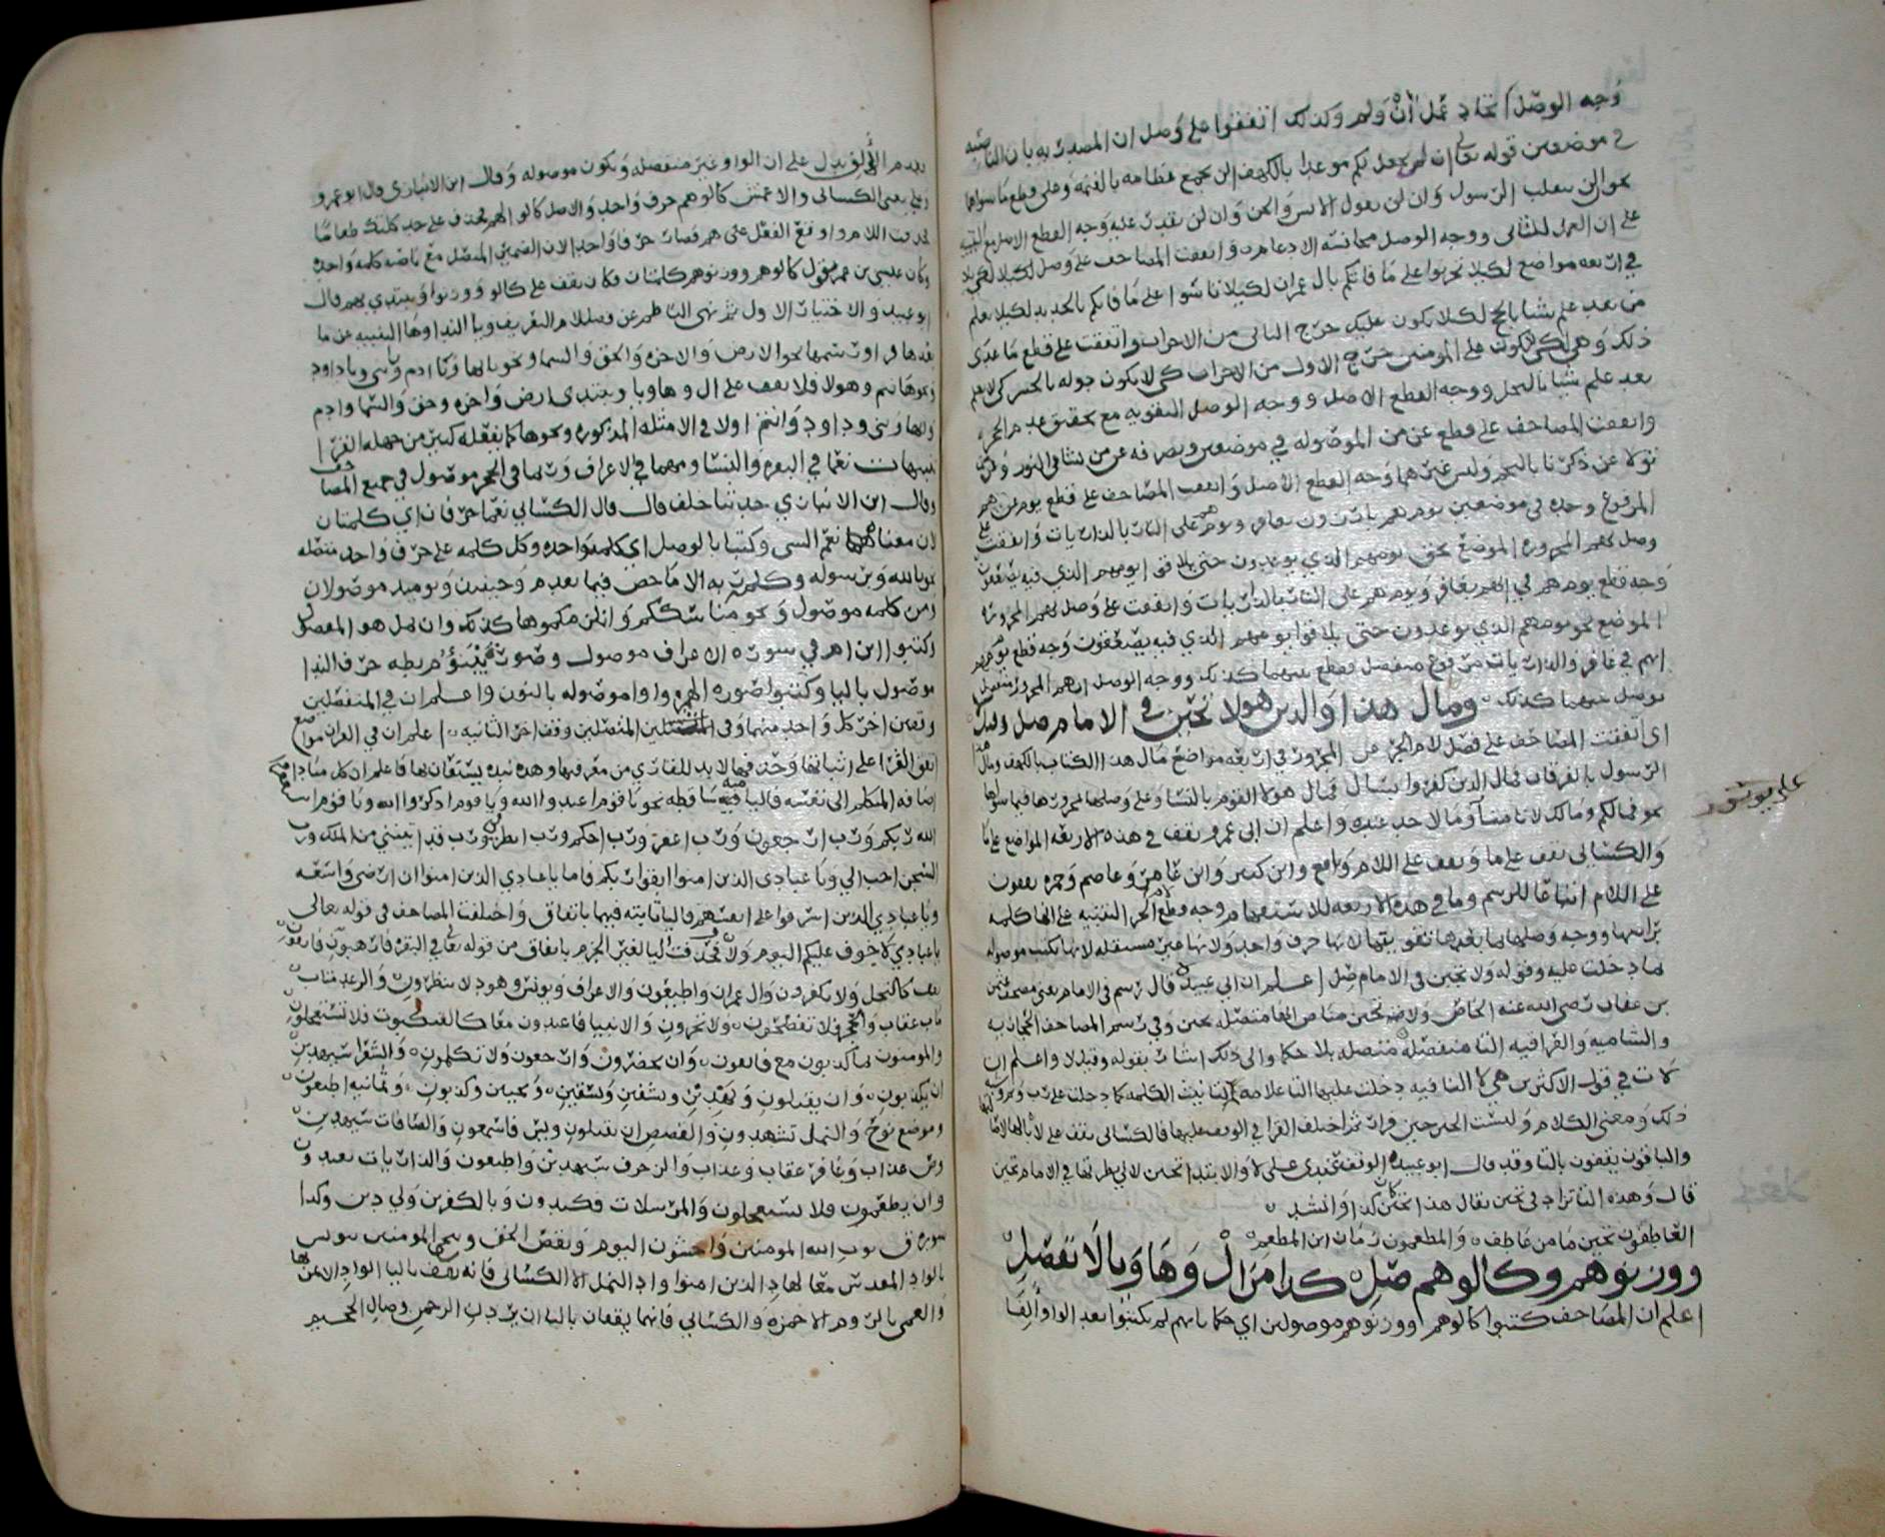 وجه الوصل اتحاد عمل ان ولم وكذلك اتفقوا على وصل ان المصدرية بان الناصبة
في موضعين قوله تعالى ان لن نجعل لكم موعدا بالكهف الن نجمع عظامه بالقيمة وعلى قطع ما سواهما
نحو ان لن ينقلب الرسول وان لن تقول الانس والجن وان لن يقدر عليه وجه القطع الاصل مع
على ان العمل للثاني ووجه الوصل مجانسة الادغام واتفقت المصاحف على وصل لكيلا
في اربعة مواضع لكيلا تحزنوا على ما فاتكم بال عمران لكيلا تاسوا على ما فاتكم بالحديد لكيلا يعلم
من بعد علم شيا بالحج لكيلا يكون عليك حرج الثاني من الاحزاب واتفقت على قطع ما عدى
ذلك وهي لكي لا يكون على المومنين حرج الاول من الاحزاب كي لا يكون دولة بالحشر لكي لا يعلم
بعد علم شيا بالنحل ووجه القطع الاصل ووجه الوصل التقوية مع تحقق عدم الحجر
واتفقت المصاحف على قطع عن من الموصولة في موضعين ويصرفه عن من يشا في النور وعن من
تولا عن ذكرنا بالنجم وليس غيرهما وجه القطع الاصل واتفقت المصاحف على قطع يوم عن هم
المرفوع وحده في موضعين يوم هم بارزون بغافر ويوم هم على النار بالذاريات واتفقت على
وصل يومهم المجرورة الموضع نحو يومهم الذي يوعدون حتى يلاقوا يومهم الذي فيه يصعقون
وجه قطع يوم هم في الهم بغافر ويوم هم على النار بالذاريات واتفقت على وصل يومهم المجرورة
الموضع نحو يومهم الذي يوعدون حتى يلاقوا يومهم الذي فيه يصعقون وجه قطع يوم هم
انهم في غافر والذاريات مرفوع منفصل فقطع عنهما كذلك ووجه الوصل ان هم المجرور متصل
فوصل عنهما كذلك ومال هذا والذين هولا تحين في الامام صل
اي اتفقت المصاحف على فصل لام الجر عن المجرور في اربعة مواضع مال هذا الكتاب بالكهف ومال هذا
الرسول بالفرقان فمال الذين كفروا بسال فمال هولا القوم بالنسا وعلى وصلها بمجرورها فيما سواها
نحو فمالكم ومالك لا تامنا وما لاحد عنده واعلم ان ابي عمرو يقف في هذه الاربعة المواضع على ما
والكسائي يقف على ما ويقف على اللام ونافع وابن كثير وابن عامر وعاصم وحمزة يقفون
على اللام اتباعا للرسم وما في هذه الاربعة للاستفهام وجه قطع لام الجر التنبيه على انها كلمة
براسها ووجه وصلها بما بعدها تقويتها لانها حرف واحد ولانها غير مستقلة لانها تكتب موصولة
بما دخلت عليه وقوله ولا تحين في الامام صل اعلم ان ابي عبيد قال رسم في الامام يعني مصحف عثمن
بن عفان رضي الله عنه الخاص ولاته حين مناص التا متصلة بحين وفي رسم المصاحف الحجازية
والشامية والعراقية التا منفصلة متصلة بلا حكما والى ذلك اشار بقوله وقيل لا واعلم ان
لات في قول الاكثرين هي لا النافية دخلت عليها التا علامة لتانيث الكلمة كما دخلت على رب وثم
ذلك ومعنى الكلام وليست الحين حين فرار ثم اختلف القرا في الوقف عليها فالكسائي يقف على لاه بالها
والباقون يقفون بالتا وقد قال ابو عبيد الوقف عندي على لا والابتدا تحين لاني نظرتها في الامام تحين
قال وهذه التا تزاد في تحين يقال هذا تحين كان كذا وانشد
العاطفون تحين ما من عاطف والمطعمون زمان اين المطعم
ووزنوهم وكالوهم صل كذا من ال وها ويا لا تفصل
اعلم ان المصاحف كتبوا كالوهم اووزنوهم موصولين اي حكما بانهم لم يكتبوا بعد الواو الفا
علي يوشور
فعدم الالف يدل على ان الواو غير منفصلة وتكون موصولة وقال ابن الانباري قال ابو عمرو
وعلي يعني الكسائي والاعمش كالوهم حرف واحد والاصل كالوا لهم فحذف على حد كلتك طعاما
فحذفت اللام واوقع الفعل على هم فصار حرفا واحدا لان الضمير المتصل مع ناصبه كلمة واحدة
وكان عيسى بن عمر يقول كالوهم ووزنوهم كلمتان فكان يقف على كالوا ووزنوا ويبتدي بهم قال
ابو عبيد والاختيار الاول ثم نهى الناظم عن فصل لام التعريف ويا الندا وها التنبيه عن ما
بعدها في اوت سمها نحو الارض والاخرة والحق والسما ونحو يايها ويا ادم ويا بني ويا داود
ونحو هانتم وهولا فلا يقف على ال وها ويا ويبتدي ارض واخرة وحق والسما وادم
وايها وبني وداود وانتم اولا في الامثلة المذكورة ونحوها كما يفعله كثير من جهلة القرا
تنبيهات نعما في البقرة والنسا ومهما في الاعراف وربما في الحجر موصول في جميع المصاحف
وقال ابن الانباري حدثنا خلف قال قال الكسائي نعما حرفان اي كلمتان
لان معناهما نعم الشي وكتبا بالوصل اي كلمة واحدة وكل كلمة على حرف واحد متصلة
نحو بالله وبرسوله وكلمته الا ما خص فيما تقدم وحينئذ ويوميذ موصولان
ومن كلمة موصول ونحو مناسككم وانلزمكموها كذلك وان يمل هو المفصول
وكتبوا ابن ام في سورة الاعراف موصول وصورة يبنؤم بطه حرف الندا
موصول باليا وكتبوا صورة الهمزة واوا موصولة بالنون واعلم ان في المنفصلين
وتعين اخر كل واحد منهما وفي المتصلين وقف اخر الثانية اعلم ان في القران مواضع
اتفق القرا على اثباتها وحذفها لا بد للقاري من معرفتها وهذه نبذة يستعان بها فاعلم ان كل مناد
اضافه المتكلم الى نفسه فاليا فيه ساقطة نحو يا قوم اعبدوا الله ويا قوم اذكروا الله ويا قوم
الله ربكم ورب ارجعون ورب اغفر ورب احكم ورب انظرني ورب قد اتيتني من الملك ورب
السجن احب الي ويا عبادي الذين امنوا اتقوا ربكم فاما يا عبادي الذين امنوا ان ارضي واسعة
ويا عبادي الذين اسرفوا على انفسهم فاليا ثابتة فيهما باتفاق واختلفت المصاحف في قوله تعالى
يا عبادي لا خوف عليكم اليوم ولا وحذفت اليا لغير الجزم باتفاق من قوله تعالى في البقرة فارهبون فاتقون
كالنحل ولا تكفرون وال عمران واطيعون والاعراف ويونس وهود لا تنظرون والرعد متاب
ماب عقاب والحجر فلا تفضحون ولا تخزون والانبيا فاعبدون معا كالعنكبوت فلا تستعجلون
والمومنون بما كذبون معا فاتقون وان يحضرون وارجعون ولا تكلمون والشعرا سيهدين
ان يكذبون وان يقتلون ويهدين ويسقين ويشفين ويحيين وكذبون وثمانية اطيعون
وموضع نوح والنمل تشهدون والقصص ان يقتلون ويس فاسمعون والصافات سيهدين
وص عذاب وغافر عقاب وعذاب والزخرف سيهدين واطيعون والذاريات يعبدون
وان يطعمون فلا يستعجلون والمرسلات فكيدون وبالكفرين ولي دين وكذا
سورة ق يوت الله المومنين واخشون اليوم ويقص الحق وننج المومنين يونس
بالواد المقدس معا لهاد الذين امنوا واد النمل الا الكسائي فانه يقف باليا الواد الايمن
والعمى بالروم الا حمزة والكسائي فانهما يقفان باليا ان يردن الرحمن وصال الجحيم